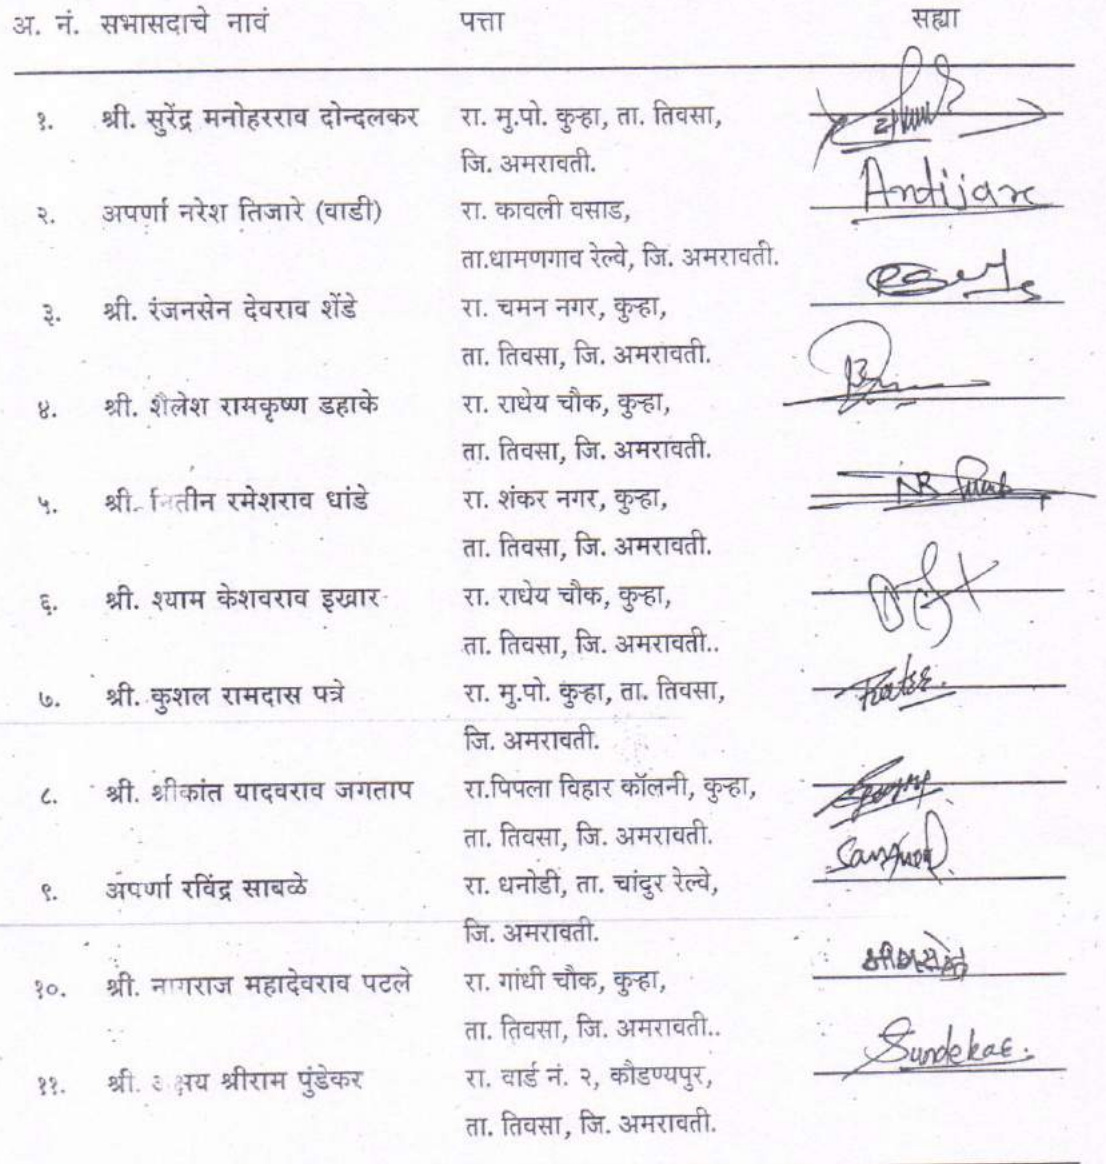 अ. नं. सभासदाचे नावं पत्ता सह्या
१. श्री. सुरेंद्र मनोहरराव दोन्दलकर रा. मु.पो. कुऱ्हा, ता. तिवसा,
जि. अमरावती.
२. अपर्णा नरेश तिजारे (वाडी) रा. कावली वसाड,
ता.धामणगाव रेल्वे, जि. अमरावती.
३. श्री. रंजनसेन देवराव शेंडे रा. चमन नगर, कुऱ्हा,
ता. तिवसा, जि. अमरावती.
४. श्री. शैलेश रामकृष्ण डहाके रा. राधेय चौक, कुऱ्हा,
ता. तिवसा, जि. अमरावती.
५. श्री. नितीन रमेशराव धांडे रा. शंकर नगर, कुऱ्हा,
ता. तिवसा, जि. अमरावती.
६. श्री. श्याम केशवराव इखार रा. राधेय चौक, कुऱ्हा,
ता. तिवसा, जि. अमरावती..
७. श्री. कुशल रामदास पत्रे रा. मु.पो. कुऱ्हा, ता. तिवसा,
जि. अमरावती.
८. श्री. श्रीकांत यादवराव जगताप रा.पिपला विहार कॉलनी, कुऱ्हा,
ता. तिवसा, जि. अमरावती.
९. अपर्णा रविंद्र साबळे रा. धनोडी, ता. चांदुर रेल्वे,
जि. अमरावती.
१०. श्री. नागराज महादेवराव पटले रा. गांधी चौक, कुऱ्हा,
ता. तिवसा, जि. अमरावती..
११. श्री. अक्षय श्रीराम पुंडेकर रा. वार्ड नं. २, कौडण्यपुर,
ता. तिवसा, जि. अमरावती.